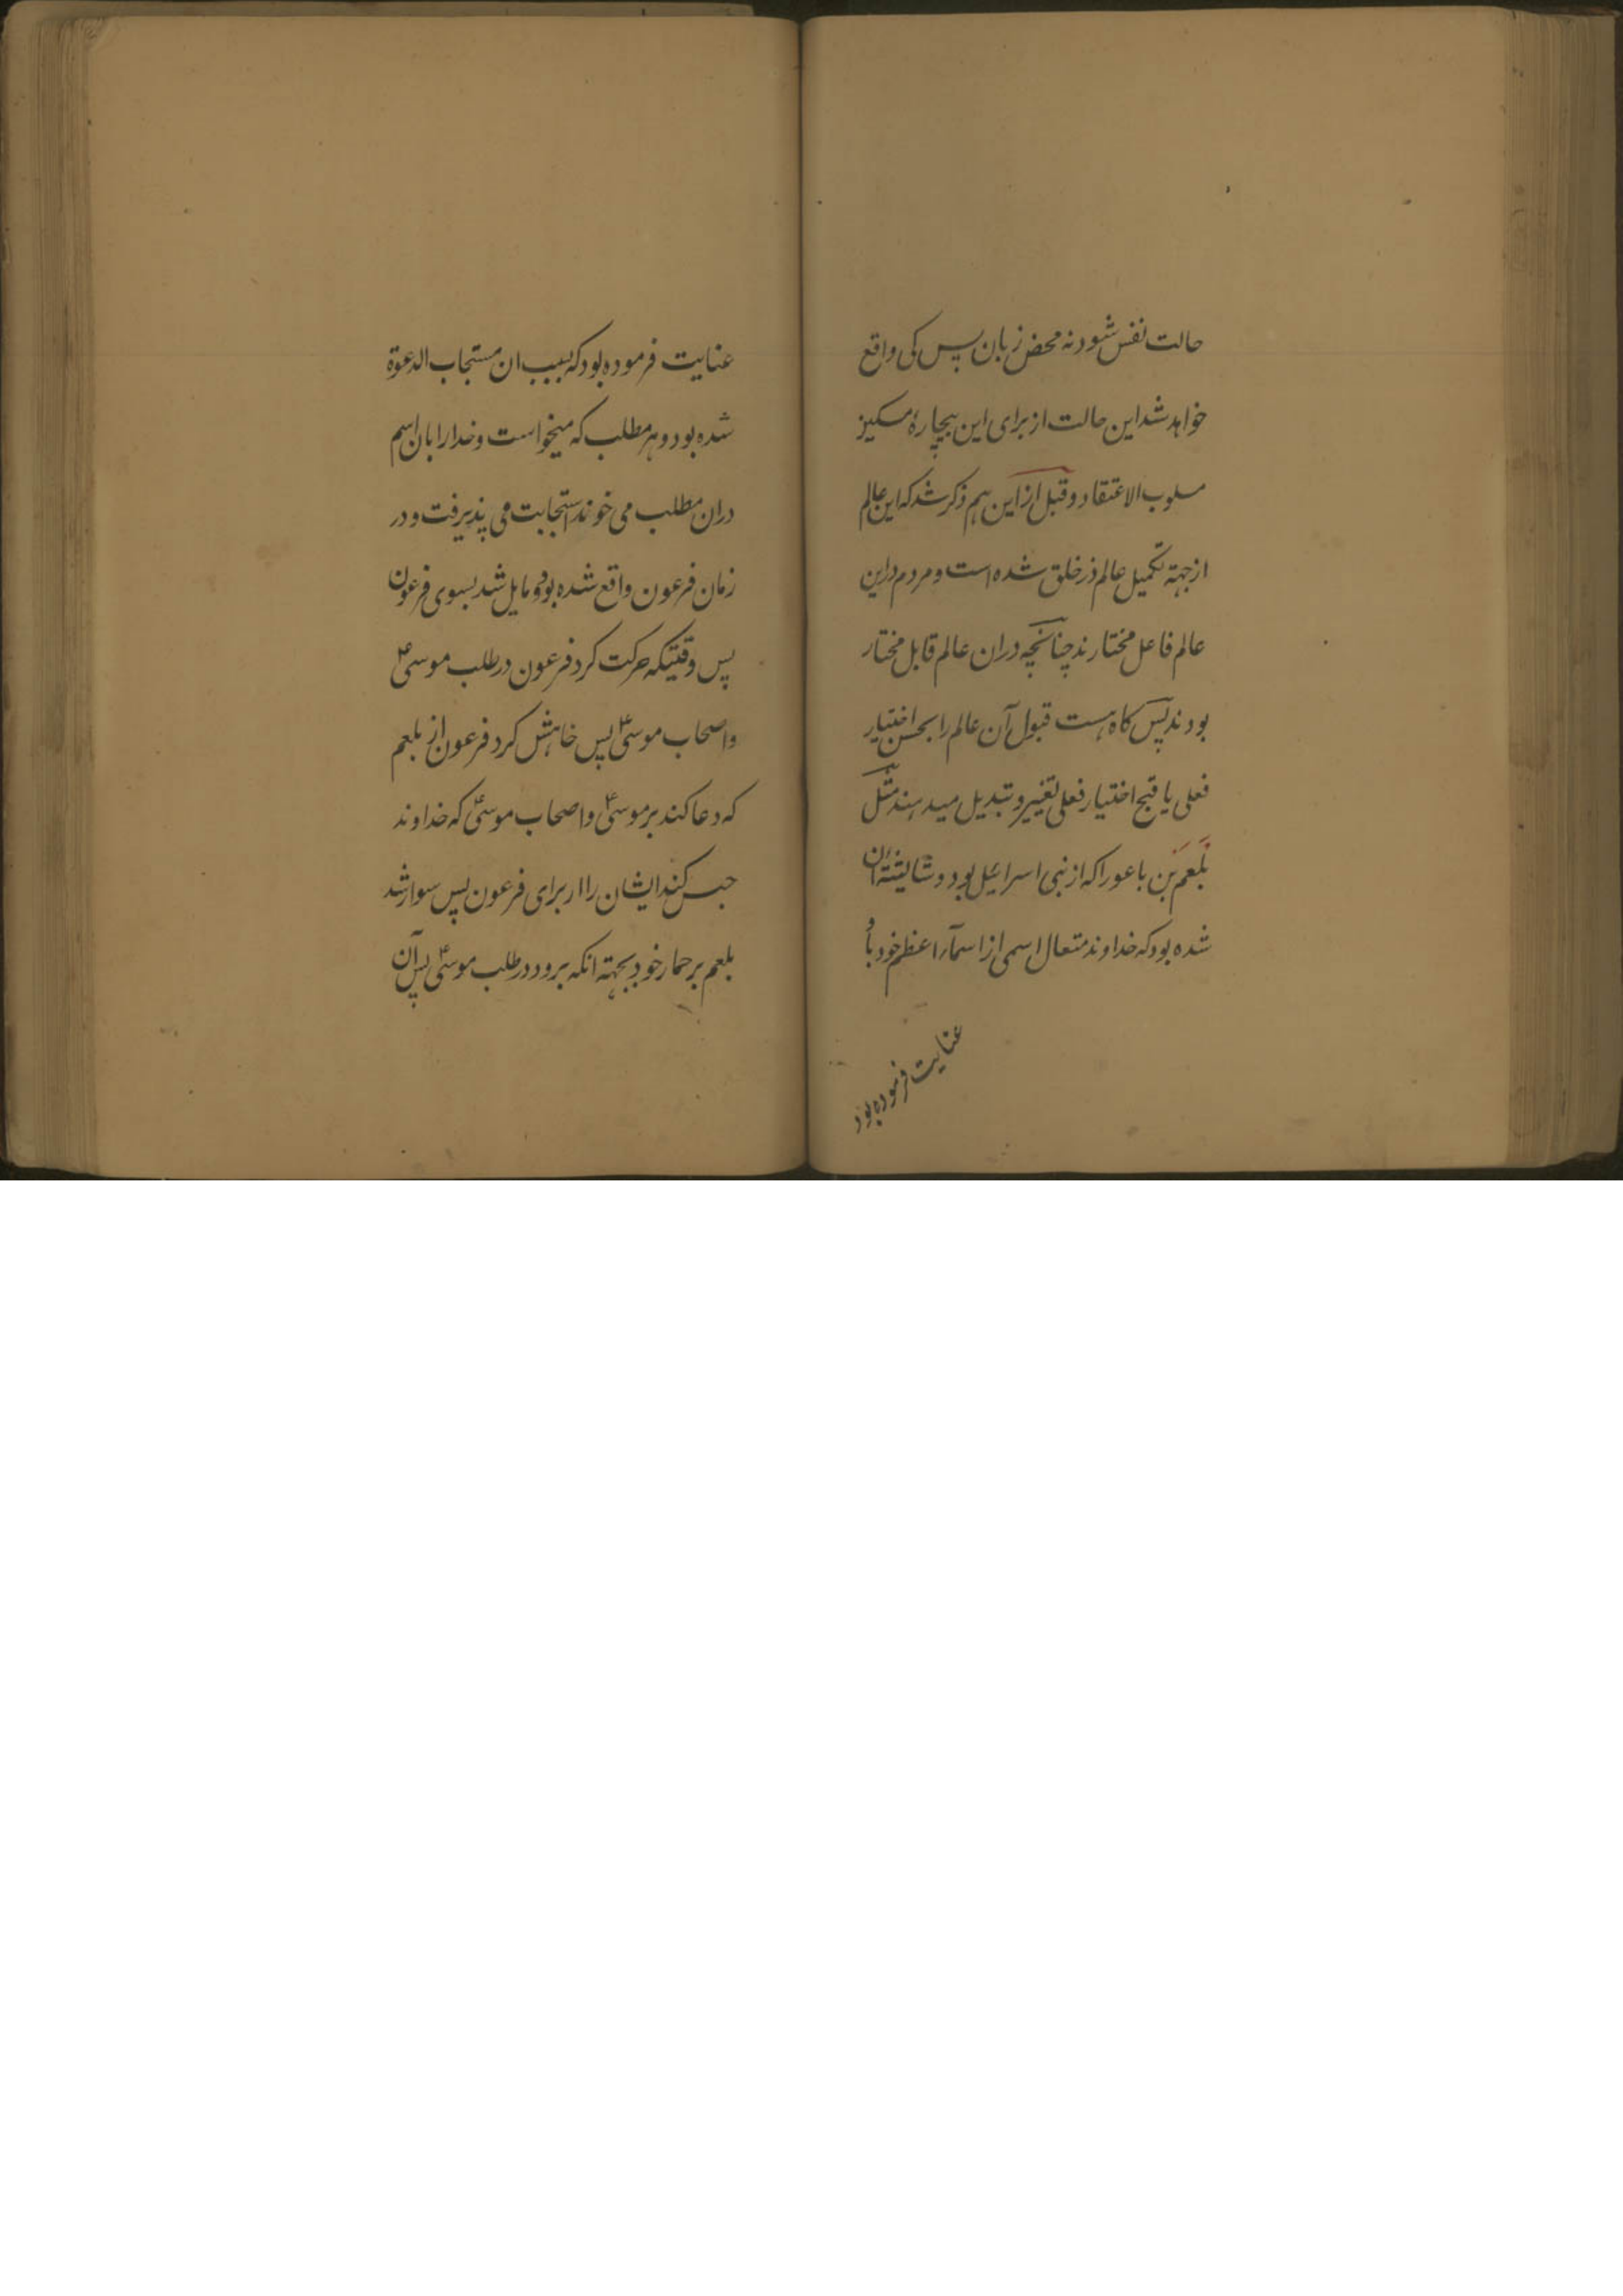 حالت نفس شود نه محض زبان پس کی واقع
خواهد شد این حالت از برای این بیچارهٔ مسکین
مسلوب الاعتقاد و قبل از این هم ذکر شد که این عالم
از جهته تکمیل عالم ذر خلق شده است و مردم در این
عالم فاعل مختارند چنانچه در ان عالم قابل مختار
بودند پس کاه هست قبول آن عالم را بحسن اختیار
فعلی یا قبح اختیار فعلی تغییر و تبدیل میدهند مثل
بلعم بن باعورا که از بنی اسرائیل بود و شایسته ان
شده بود که خداوند متعال اسمی از اسمآء اعظم خود باو
عنایت فرموده بود
عنایت فرموده بود که بسبب ان مستجاب الدعوة
شده بود و هر مطلب که میخواست و خدا را بان اسم
در ان مطلب می خواند استجابت می پذیرفت و در
زمان فرعون واقع شده بود و مایل شد بسوی فرعون
پس وقتیکه حرکت کرد فرعون در طلب موسی ع
و اصحاب موسی ع پس خاهش کرد فرعون از بلعم
که دعا کند بر موسی ع و اصحاب موسی ع که خداوند
حبس کند ایشان را از برای فرعون پس سوار شد
بلعم بر حمار خود بجهته انکه برود در طلب موسی ع پس آن